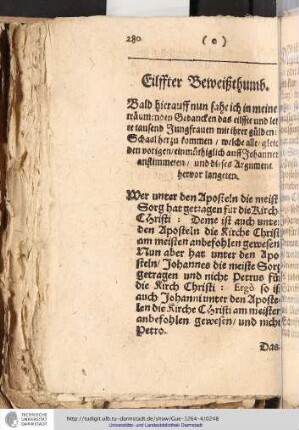 280 ( o )
Eilffter Beweißthumb.
Bald hierauff nun sahe ich in meine
träumenden Gedancken das eilffte und letz
te tausend Jungfrauen mit ihrer gülden:
Schaal herzu kommen / welche alle / gleich
den vorigen / einmürhiglich auff Johannem
anstimmeten / und dieses Argument
hervor langeten.
Wer unter den Aposteln die meist
Sorg hat getragen für die Kirch
CHristi: Deme ist auch unter
den Aposteln die Kirche Christ
am meisten anbefohlen gewesen
Nun aber hat unter den Apo
steln / Johannes die meiste Sorg
getragen und nicht Petrus für
die Kirch Christi: Ergò so ist
auch Johanni unter den Aposte-
len die Kirche CHristi am meisten
anbefohlen gewesen / und nicht
Petro.
Das
TECHNISCHE
UNIVERSITÄT
DARMSTADT
http://tudigit.ulb.tu-darmstadt.de/show/Gue-1264-4/0248
Universitäts- und Landesbibliothek Darmstadt